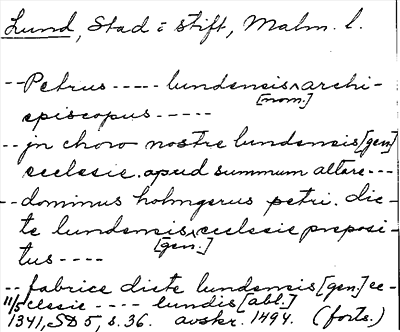 Lund, Stad = stift, Malm. l.
-- Petrus ----- lundensis archi-
[nom.]
episcopus -----
-- jn choro nostre lundensis [gen]
ecclesie. apud summum altare ---
-- dominus holmgerus petri. dic-
te lundensis ecclesie preposi-
[gen.]
tus ----
-- fabrice dicte lundensis [gen] ec-
11/5 clesie ---- lundis [abl.]
1341, SD 5, s. 36. avskr. 1494. (forts.)